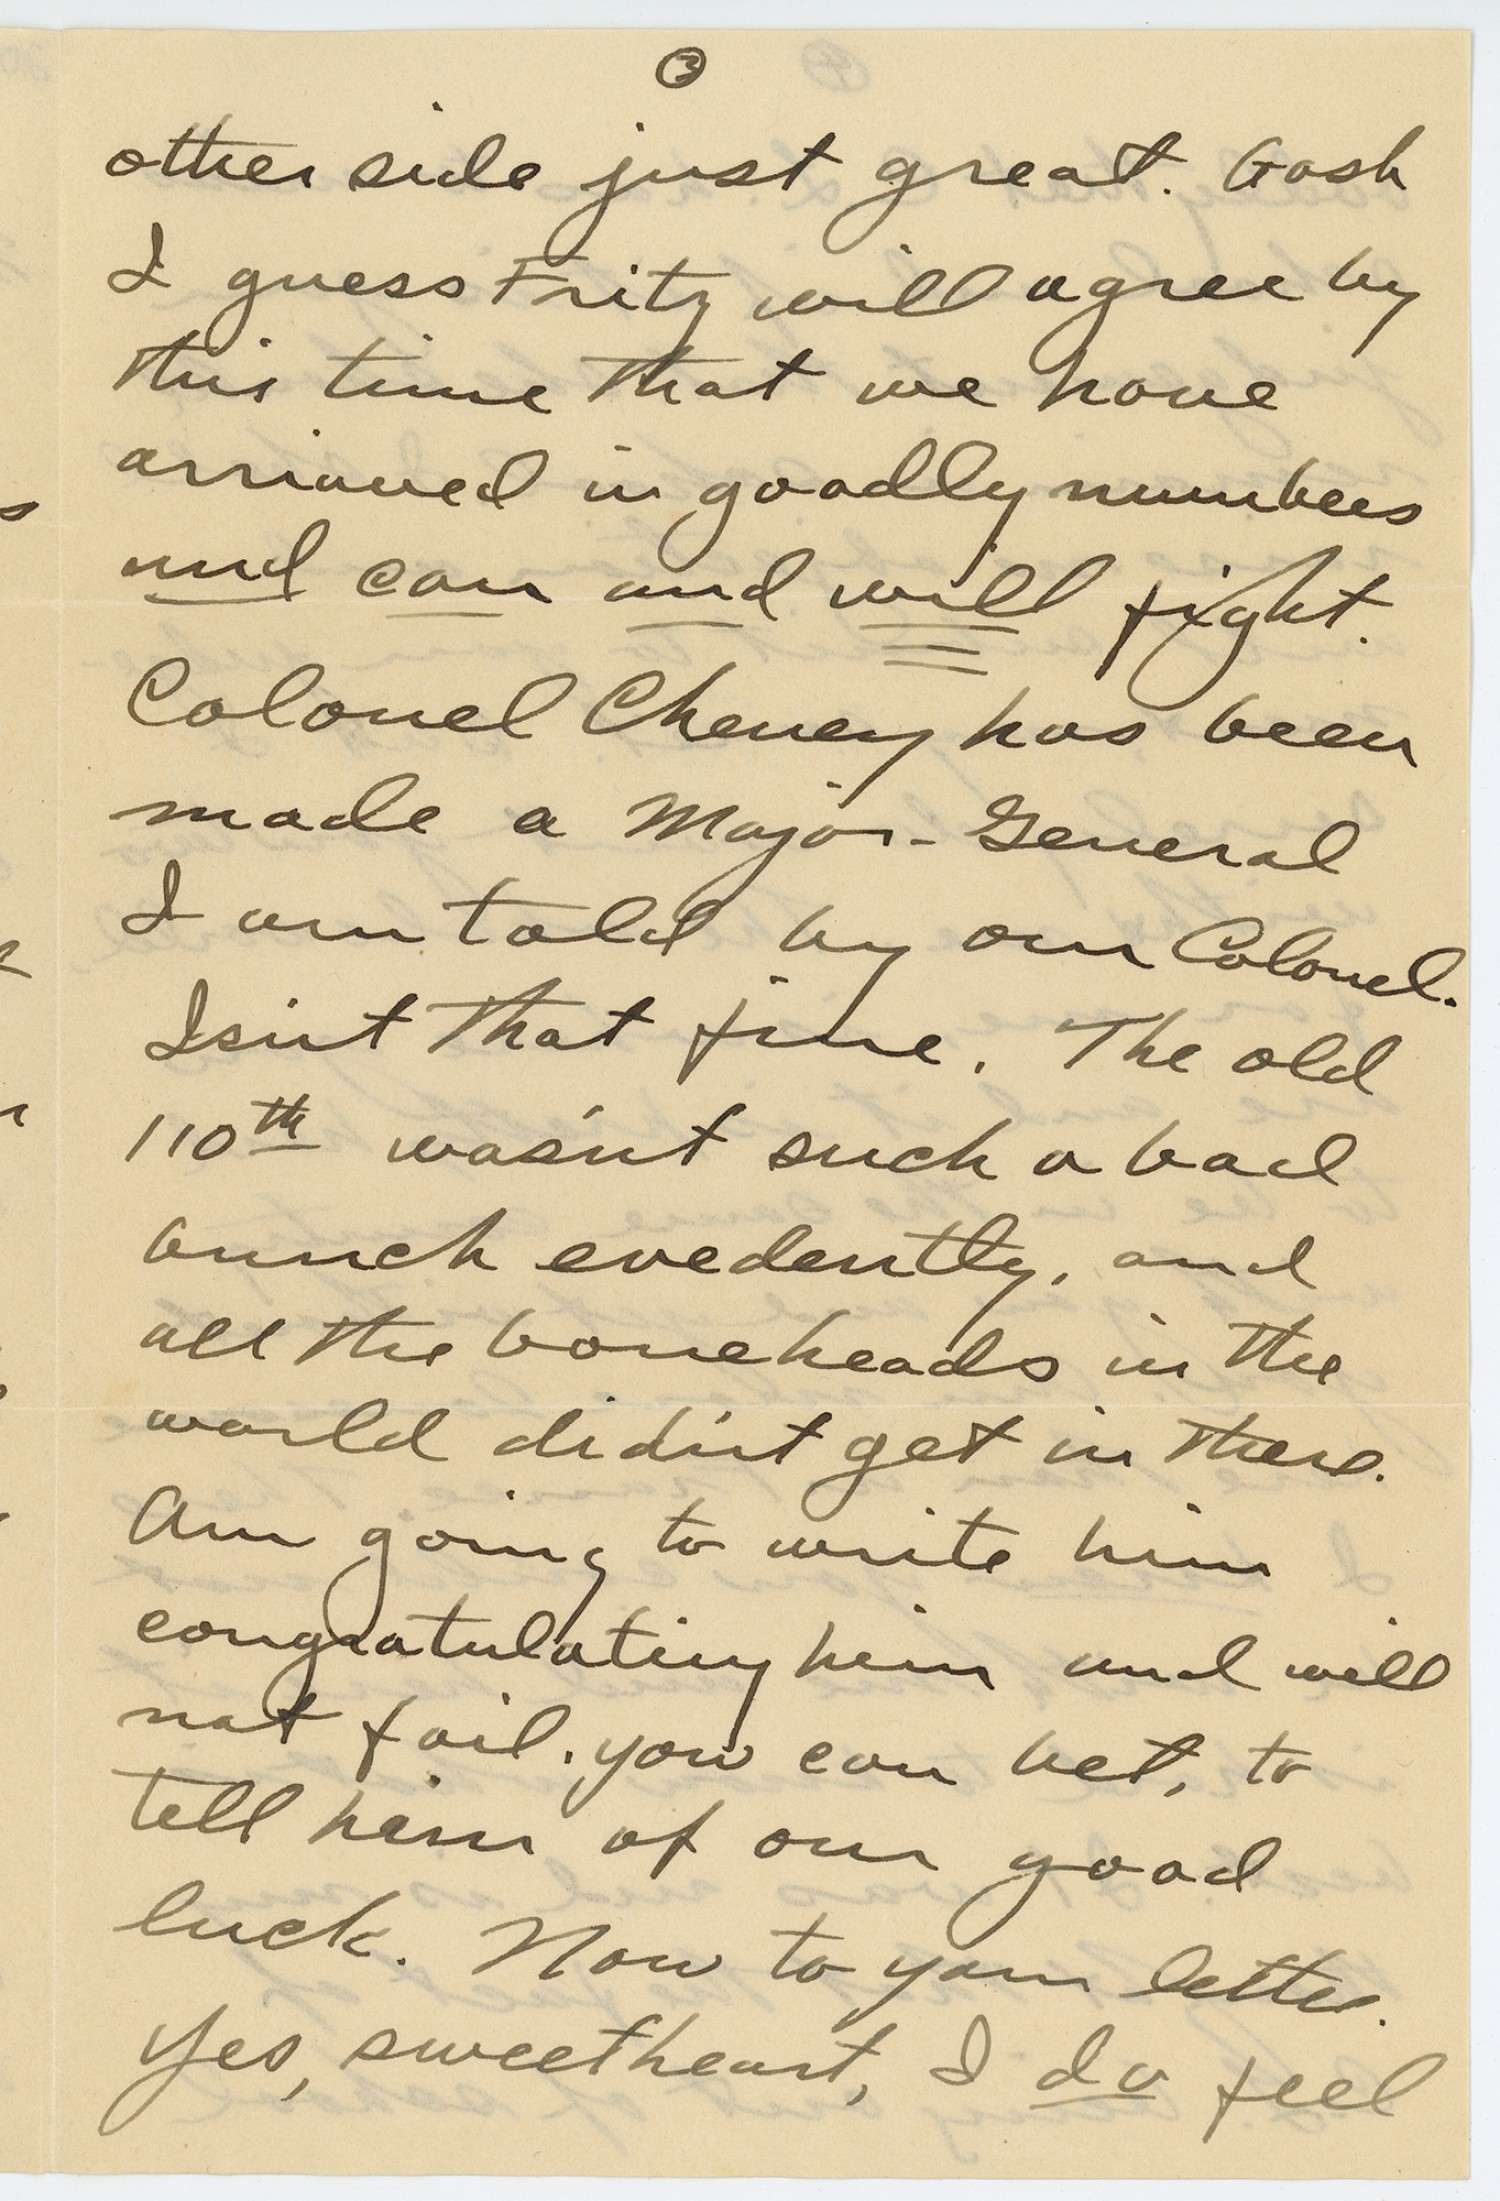 ③
other side just great. Gosh
I guess Fritz will agree by
this time that we have
arrived in goodly numbers
and can and will fight.
Colonel Cheney has been
made a Major-General
I am told by our Colonel.
Isn't that fine. The old
110th wasn't such a bad
bunch evedently, and
all the boneheads in the
world didn't get in there.
Am going to write him
congratulating him and will
not fail, you can bet, to
tell him of our good
luck. Now to your letter.
Yes, sweetheart, I do feel